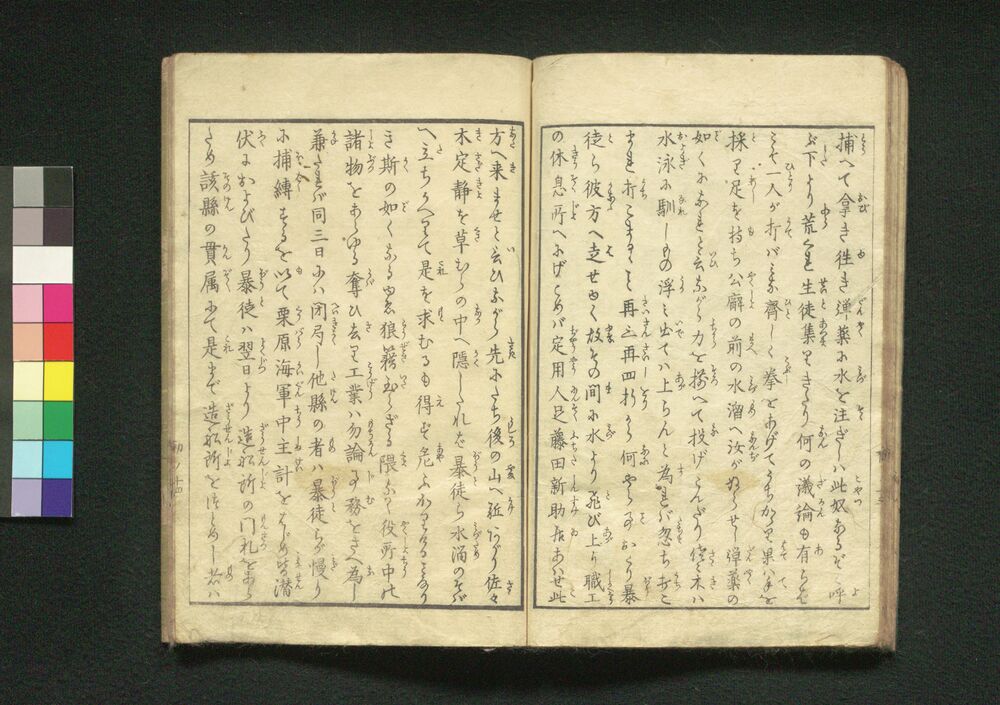 捕へて拿き往き弾薬に水を注ぎしハ此奴なるぞと呼
ぶ下より荒くれ生徒集りきたり何の議論も有らバこ
そ一人が打バミな齊しく拳をあげてうちかゝり果ハ手を
採り足を持ち公廨の前の水溜へ汝がぬらせし弾薬の
如くになれと云ながら力を撈へて投げこんだり佐々木ハ
水泳に馴しもの浮ミ出てハ上らんと為れバ忽ち打こ
まれ打こまるゝこと再三再四折から何やらん事おこり暴
徒ら彼方へ走せゆく故その間に水より飛び上り職工
の休息所へにげこめバ定用人足藤田新助居あハせ此
方へ来ませと云ひながら先にたち後の山へ延あがり佐々
木定静を草むらの中へ隠したれバ暴徒ら水溜のそば
へ立ちかへりて是を求むるも得ず危ふかりけることなり
き斯の如くなるゆゑ狼籍至らざる隈なく役所中の
諸物をあらゆる奪ひ去り工業ハ勿論事務をさへ為し
兼たれバ同三日にハ閉局し他縣の者ハ暴徒らが慢り
に捕縛するを以て栗原海軍中主計をはじめ皆潜
伏におよびたり暴徒ハ翌日より造船所の門札をあら
ため該縣の貫属にて是まで造船所をつとめし者ハ
初ノ十四